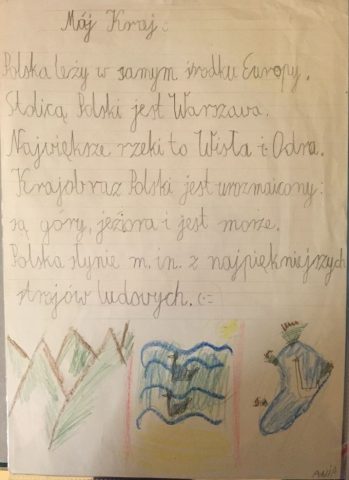 Mój Kraj:
Polska leży w samym środku Europy.
Stolicą Polski jest Warszawa.
Największe rzeki to Wisła i Odra.
Krajobraz Polski jest urozmaicony:
są góry, jeziora i jest morze.
Polska słynie m.in. z najpiękniejszych
strojów ludowych. (:=
ANIA